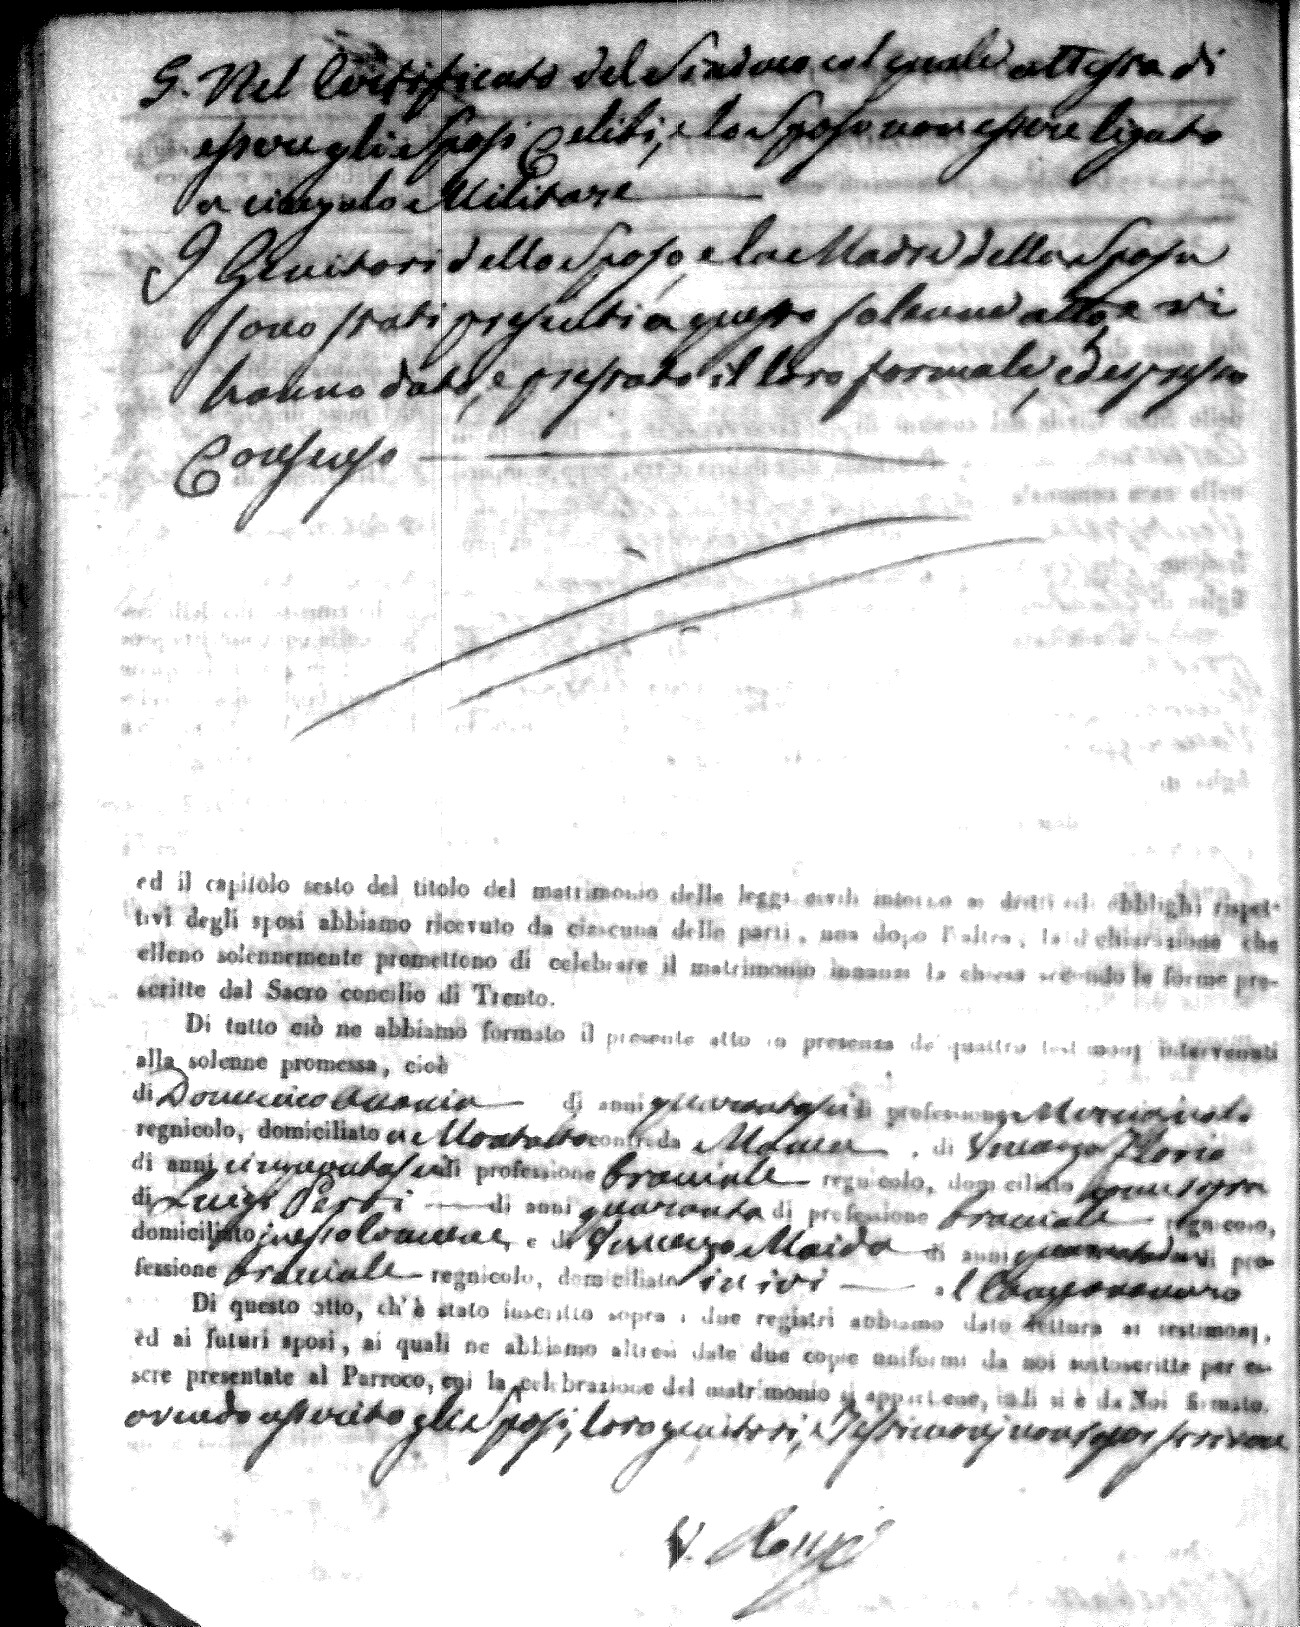 5. Nel Certificato del Sindaco col quale attesta di
essere gli Sposi Celibi, e lo Sposo non essere ligato
a cingolo Militare
I Genitori dello Sposo, e la Madre della Sposa
sono stati presenti a questo solenne atto, e vi
hanno dato, e prestato il loro formale, ed espresso
Consenso
ed il capitolo sesto del titolo del matrimonio delle leggi civili intorno ai dritti ed obblighi rispet-
tivi degli sposi abbiamo ricevuto da ciascuna delle parti, una dopo l'altra, la dichiarazione che
elleno solennemente promettono di celebrare il matrimonio innanzi la chiesa secondo le forme pre-
scritte dal Sacro concilio di Trento.
Di tutto ciò ne abbiamo formato il presente atto in presenza de' quattro testimonj intervenuti
alla solenne promessa, cioè
di Domenico di anni quarantasei di professione
regnicolo, domiciliato a Montalto contrada , di Vincenzo Florio
di anni cinquantasei di professione bracciale regnicolo, domiciliato come sopra
di Luigi di anni quaranta di professione bracciale regnicolo,
domiciliato e di Vincenzo Maida di anni di pro-
fessione bracciale regnicolo, domiciliato ivi
Di questo atto, ch'è stato inscritto sopra i due registri abbiamo dato lettura ai testimonj,
ed ai futuri sposi, ai quali ne abbiamo altresì date due copie uniformi da noi sottoscritte per es-
sere presentate al Parroco, cui la celebrazione del matrimonio si appartiene, indi si è da Noi firmato.
avendo asserito gli Sposi, loro genitori, e Testimonj non saper scrivere
V.